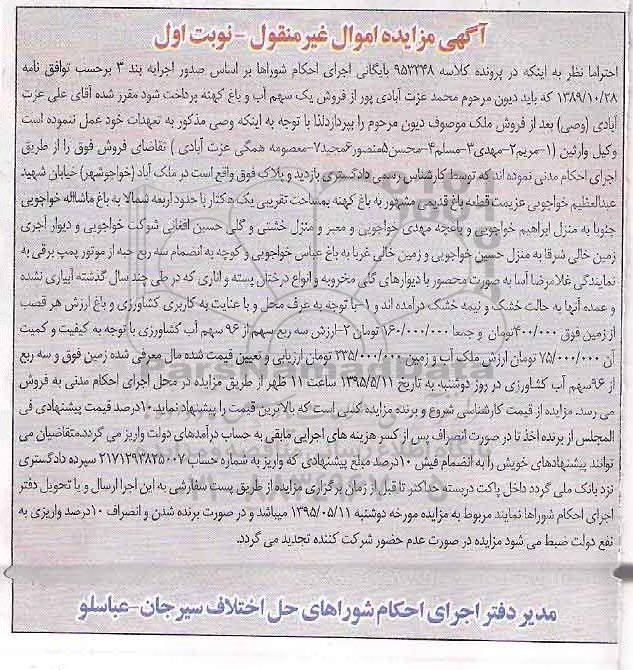 آگهی مزایده اموال غیرمنقول - نوبت اول
احتراما نظر به اینکه در پرونده کلاسه ۹۵۳۲۴۸ بایگانی اجرای احکام شوراها بر اساس صدور اجرائیه بند ۳ برحسب توافق نامه
۱۳۸۹/۱۰/۲۸ که باید دیون مرحوم محمد عزت آبادی پور از فروش یک سهم آب و باغ کهنه پرداخت شود مقرر شده آقای علی عزت
آبادی (وصی) بعد از فروش ملک موصوف دیون مرحوم را بپردازدلذا با توجه به اینکه وصی مذکور به تعهدات خود عمل ننموده است
وکیل وراثین (۱-مریم۲-مهدی۳-مسلم۴-محسن۵منصور۶مجید۷-معصومه همگی عزت آبادی ) تقاضای فروش فوق را از طریق
اجرای احکام مدنی نموده اند که توسط کارشناس رسمی دادگستری بازدید و پلاک فوق واقع است در ملک آباد (خواجوشهر) خیابان شهید
عبدالعظیم خواجویی عزیمت قطعه باغ قدیمی مشهور به باغ کهنه بمساحت تقریبی یک هکتار با حدود اربعه شمالا به باغ ماشااله خواجویی
جنوبا به منزل ابراهیم خواجویی و باغچه مهدی خواجویی و معبر و منزل خشتی و گلی حسین افغانی شوکت خواجویی و دیوار آجری
زمین خالی شرقا به منزل حسین خواجویی و زمین خالی غربا به باغ عباس خواجویی و کوچه به انضمام سه ربع حبه از موتور پمپ برقی به
نمایندگی غلامرضا آسا به صورت محصور با دیوارهای گلی مخروبه و انواع درختان پسته و اناری که در طی چند سال گذشته آبیاری نشده
و عمده آنها به حالت خشک و نیمه خشک درآمده اند و ۱-با توجه به عرف محل و با عنایت به کاربری کشاورزی و باغ ارزش هر قصب
از زمین فوق ۴۰۰/۰۰۰تومان و جمعا ۱۶۰/۰۰۰/۰۰۰ تومان ۲-ارزش سه ربع سهم از ۹۶ سهم آب کشاورزی با توجه به کیفیت و کمیت
آن ۷۵/۰۰۰/۰۰۰ تومان ارزش ملک آب و زمین ۲۳۵/۰۰۰/۰۰۰ تومان ارزیابی و تعیین قیمت شده مال معرفی شده زمین فوق و سه ربع
از ۹۶سهم آب کشاورزی در روز دوشنبه به تاریخ ۱۳۹۵/۵/۱۱ ساعت ۱۱ ظهر از طریق مزایده در محل اجرای احکام مدنی به فروش
می رسد. مزایده از قیمت کارشناسی شروع و برنده مزایده کسی است که بالاترین قیمت را پیشنهاد نماید.۱۰درصد قیمت پیشنهادی فی
المجلس از برنده اخذ تا در صورت انصراف پس از کسر هزینه های اجرایی مابقی به حساب درآمدهای دولت واریز می گردد.متقاضیان می
توانند پیشنهادهای خویش را به انضمام فیش ۱۰درصد مبلغ پیشنهادی که واریز به شماره حساب ۲۱۷۱۲۹۳۸۲۵۰۰۷ سپرده دادگستری
نزد بانک ملی گردد داخل پاکت دربسته حداکثر تا قبل از زمان برگزاری مزایده از طریق پست سفارشی به این اجرا ارسال و یا تحویل دفتر
اجرای احکام شوراها نمایند مربوط به مزایده مورخه دوشنبه ۱۳۹۵/۰۵/۱۱ میباشد و در صورت برنده شدن و انصراف ۱۰درصد واریزی به
نفع دولت ضبط می شود مزایده در صورت عدم حضور شرکت کننده تجدید می گردد.
مدیر دفتر اجرای احکام شوراهای حل اختلاف سیرجان-عباسلو
ParsNamadData